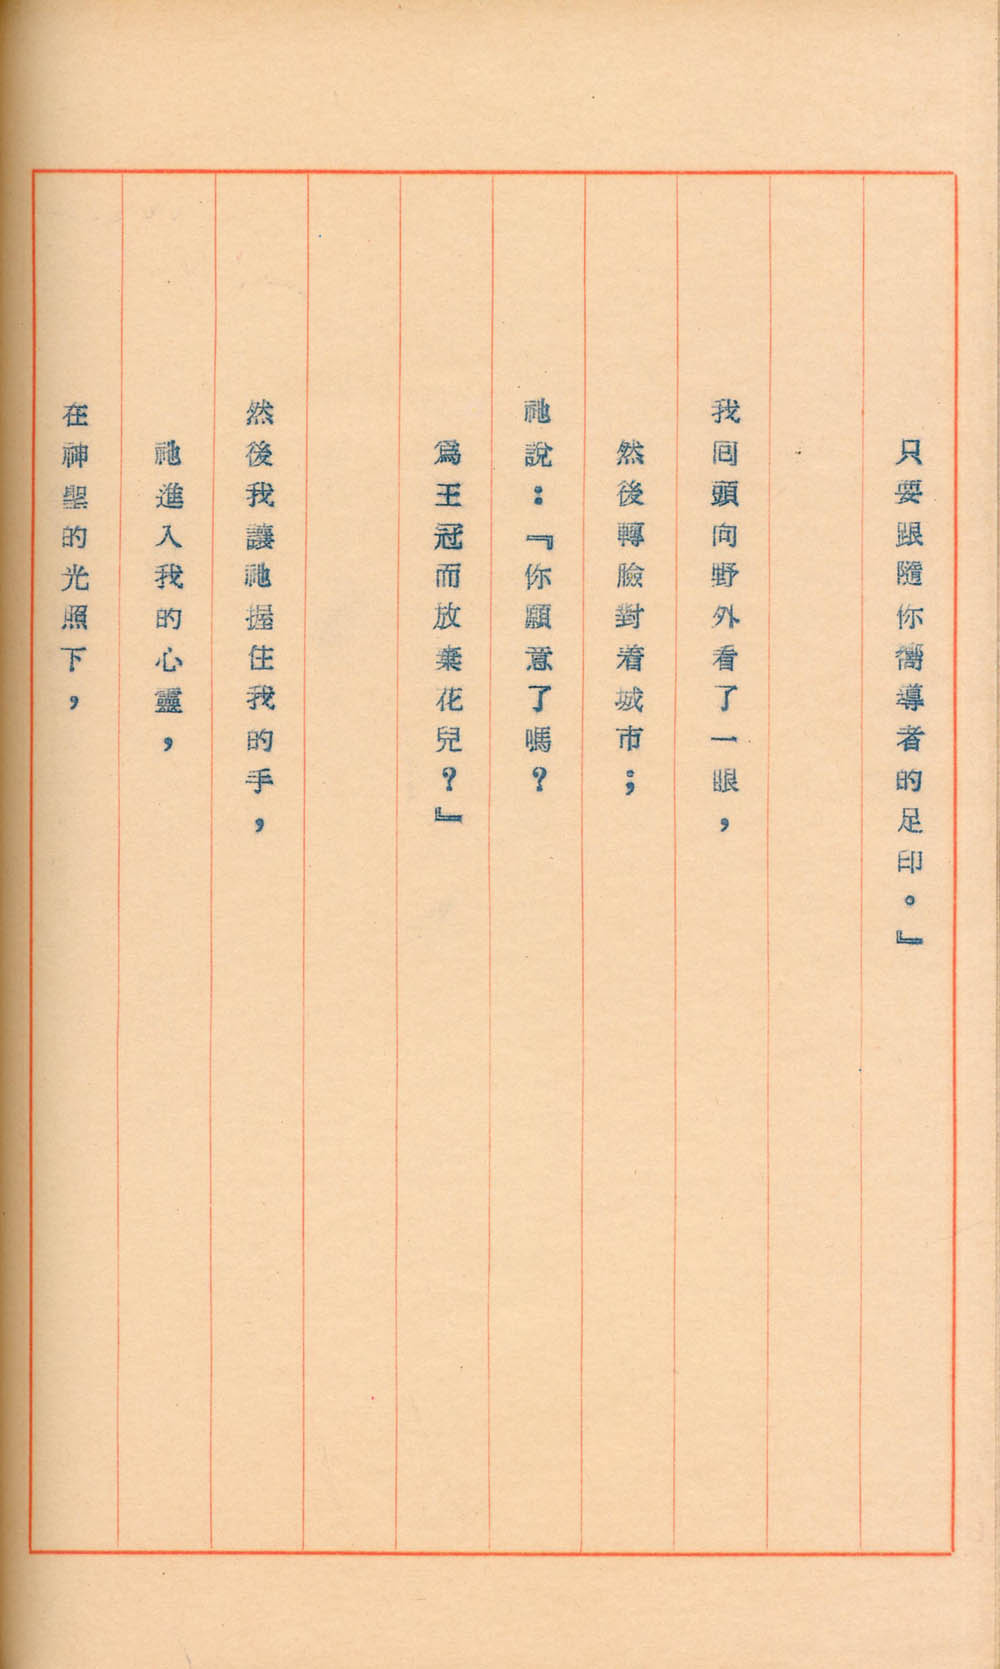 只要跟隨你嚮導者的足印。』
我回頭向野外看了一眼，
然後轉臉對着城市；
祂說：『你願意了嗎？
爲王冠而放棄花兒？』
然後我讓祂握住我的手，
祂進入我的心靈，
在神聖的光照下，